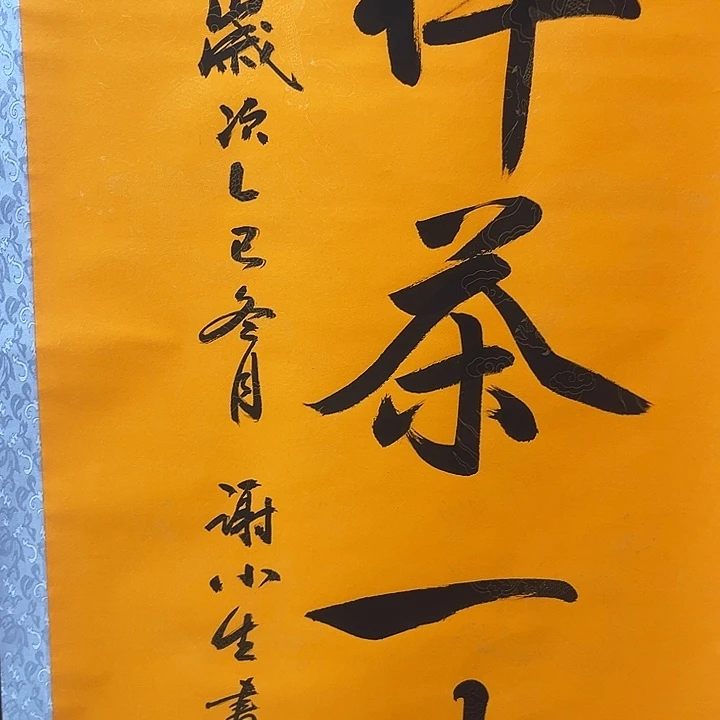 茶一
歲次乙巳冬月 谢小生書